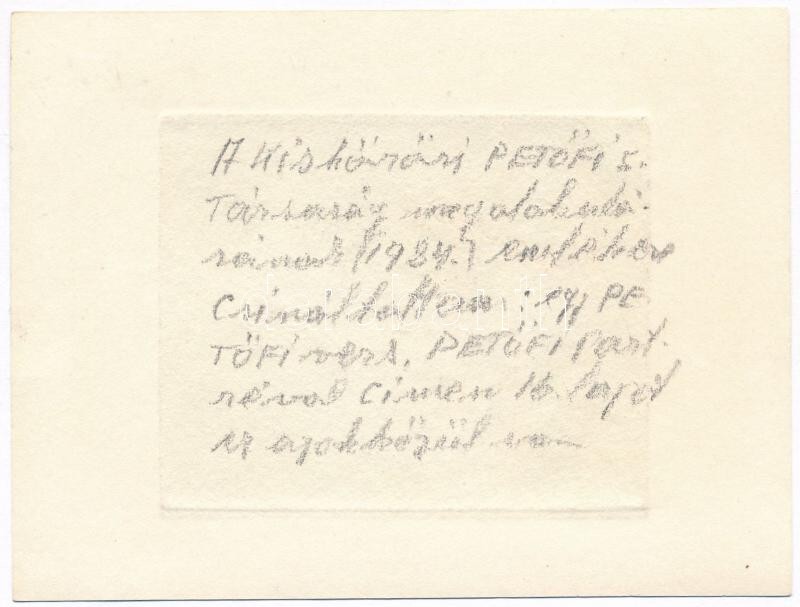 A Kiskőrösi PETŐFI S.
Társaság megalakulá-
sának (1984.) emlékére
csináltattam: egy PE
TŐFI vers, PETŐFI Port-
réval címen 16 lapot
ez azok közül van